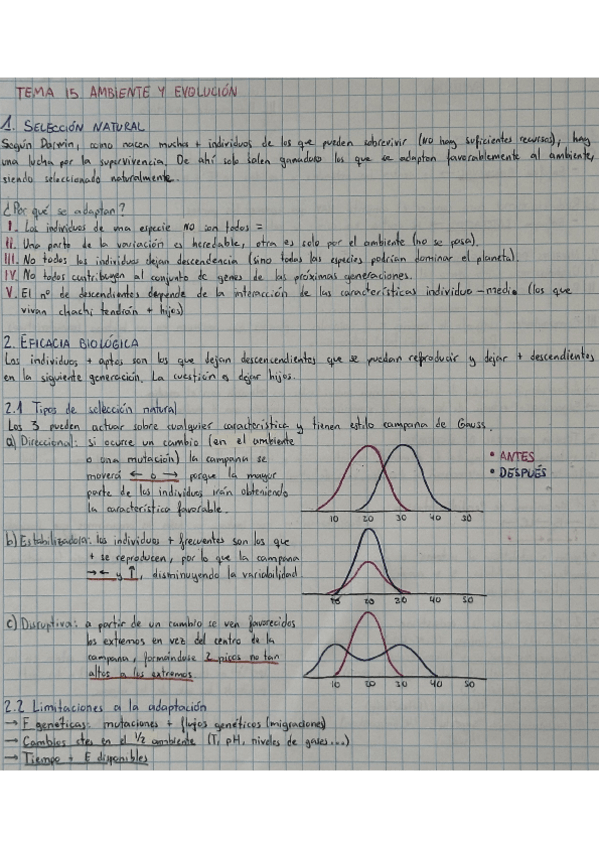 TEMA 15. AMBIENTE Y EVOLUCIÓN
1. SELECCIÓN NATURAL
Según Darwin, como nacen muchos + individuos de los que pueden sobrevivir (NO hay suficientes recursos), hay
una lucha por la supervivencia. De ahí solo salen ganadores los que se adaptan favorablemente al ambiente,
siendo seleccionado naturalmente.
¿Por qué se adaptan?
I. Los individuos de una especie NO son todos =
II. Una parte de la variación es heredable, otra es solo por el ambiente (no se pasa).
III. No todos los individuos dejan descendencia (sino todas las especies podrían dominar el planeta).
IV. No todos contribuyen al conjunto de genes de las próximas generaciones.
V. El nº de descendientes depende de la interacción de las características individuo-medio (los que
vivan chachi tendrán + hijos)
2. EFICACIA BIOLÓGICA
Los individuos + aptos son los que dejan descencendientes que se puedan reproducir y dejar + descendientes
en la siguiente generación. La cuestión es dejar hijos.
2.1 Tipos de selección natural
Los 3 pueden actuar sobre cualquier característica y tienen estilo campana de Gauss.
a) Direccional: si ocurre un cambio (en el ambiente
o una mutación) la campana se
moverá ← o → porque la mayor
parte de los individuos irán obteniendo
la característica favorable.
• ANTES
• DESPUÉS
10 20 30 40 50
b) Estabilizadora: los individuos + frecuentes son los que
+ se reproducen, por lo que la campana
→← y ↑, disminuyendo la variabilidad
10 20 30 40 50
c) Disruptiva: a partir de un cambio se ven favorecidos
los extremos en vez del centro de la
campana, formándose 2 picos no tan
altos a los extremos.
10 20 30 40 50
2.2 Limitaciones a la adaptación
→ F genéticas: mutaciones + flujos genéticos (migraciones)
→ Cambios ctes en el 1/2 ambiente (T, pH, niveles de gases...)
→ Tiempo + E disponibles